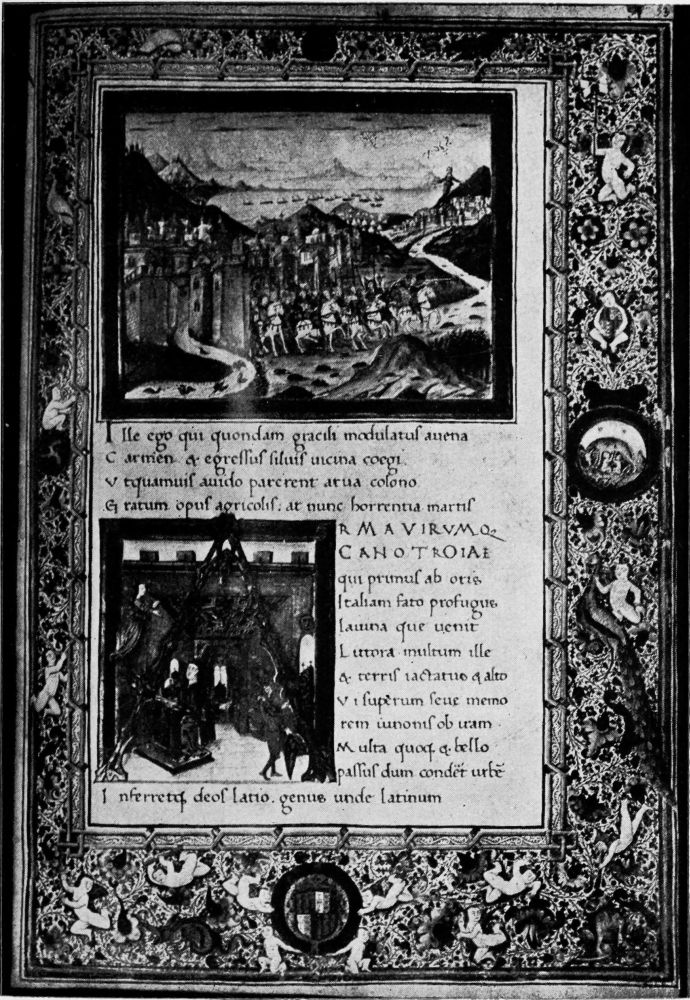 53
Ille ego qui quondam gracili modulatus auena
Carmen & egressus siluis uicina coegi.
Vt quamuis auido parerent arua colono
Gratum opus agricolis. at nunc horrentia martis
RMA VIRVMQ
CANO TROIAE
qui primus ab oris
Italiam fato profugus
lauina que uenit
Littora multum ille
& terris iactatus & alto
Vi superum seue memo
rem iunonis ob iram
Multa quoq & bello
passus dum conderet urbē
Inferretq deos latio. genus unde latinum